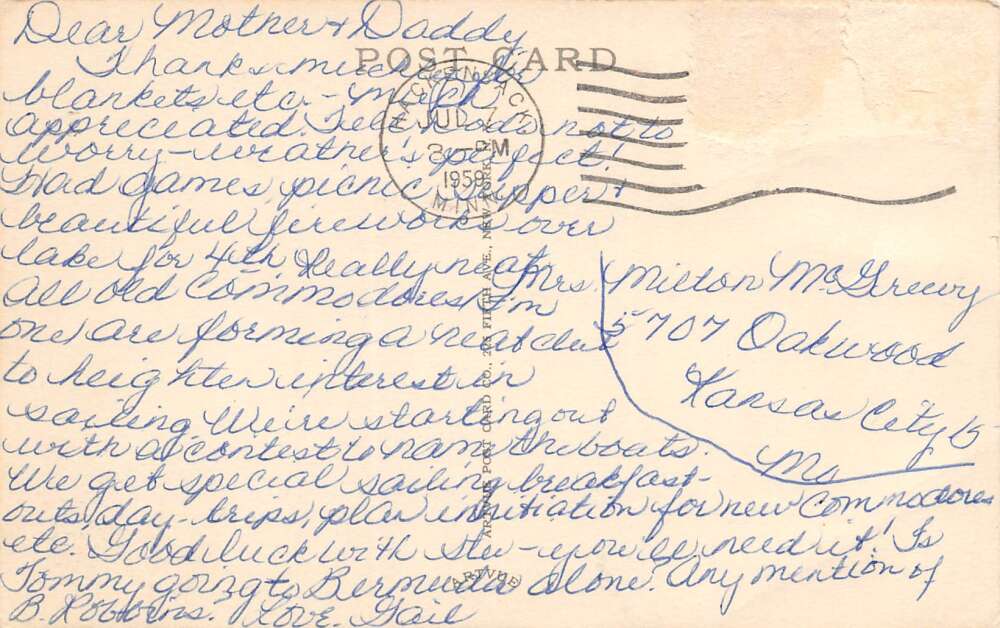 Dear Mother & Daddy
POST CARD
Thanks much for
blankets etc. - much
appreciated. Tell Dodo not to
worry - weather's perfect!
Had games, picnic supper &
beautiful fireworks over
lake for 4th Really neat.
All old Commodores (I'm
one) are forming a neat club
to heighten interest in
sailing We're starting out
with a contest to name the boats.
We get special sailing breakfast-
outs, day-trips, plan initiation for new Commodores
etc. Good luck with Stu - you'll need it! Is
Tommy going to Bermuda alone? Any mention of
B. Robbins? Love, Gail
HACKENSACK
JUL 7
PM
1959
MINN
Mrs. Milton McGreevy
5707 Oakwood
Kansas City 15
Mo
ARTVUE POST CARD CO., 225 FIFTH AVE., NEW YORK
ARTVUE